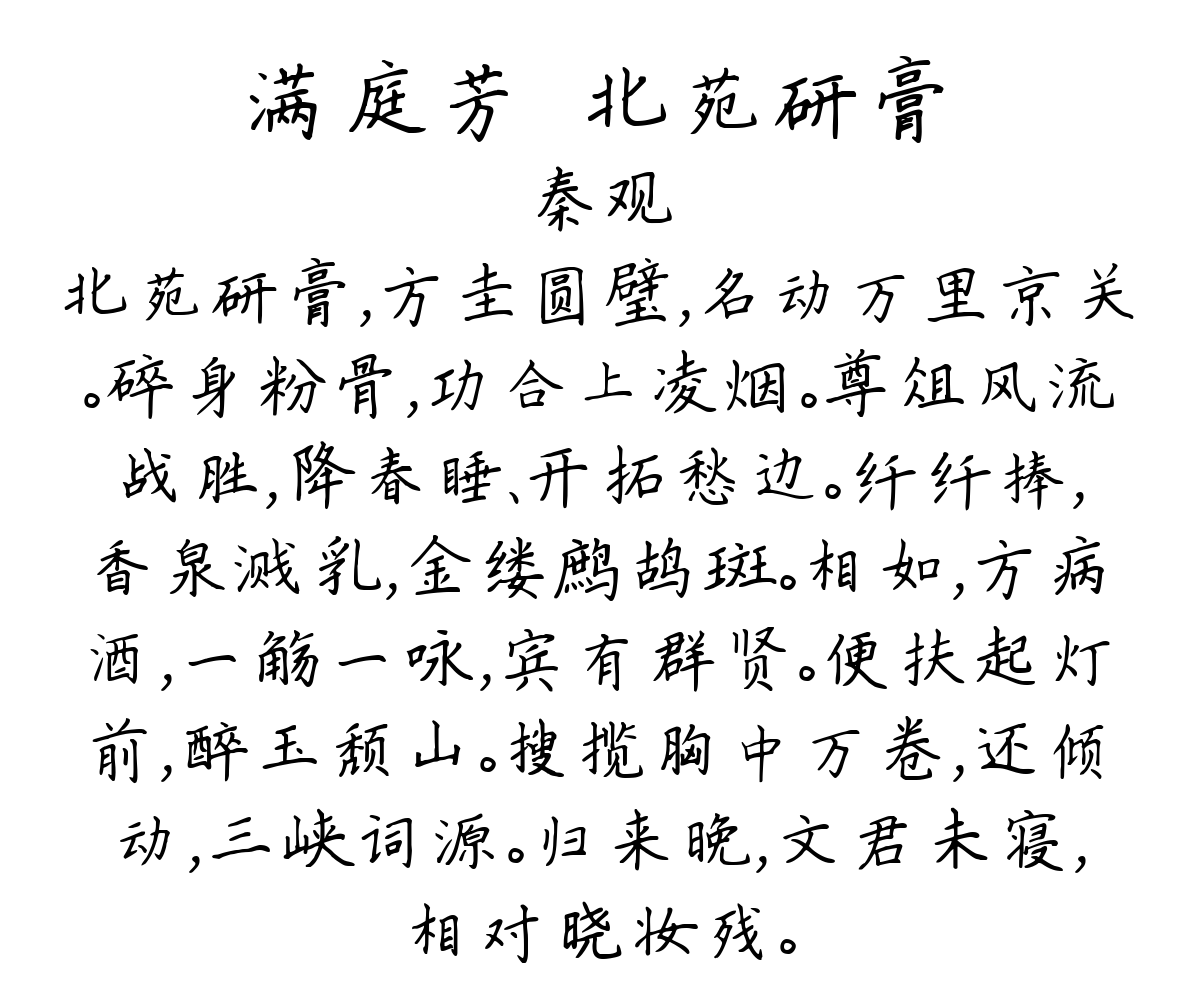 满庭芳 北苑研膏
秦观
北苑研膏,方圭圆璧,名动万里京关
。碎身粉骨,功合上凌烟。尊俎风流
战胜,降春睡、开拓愁边。纤纤捧,
香泉溅乳,金缕鹧鸪斑。相如,方病
酒,一觞一咏,宾有群贤。便扶起灯
前,醉玉颓山。搜揽胸中万卷,还倾
动,三峡词源。归来晚,文君未寝,
相对晓妆残。